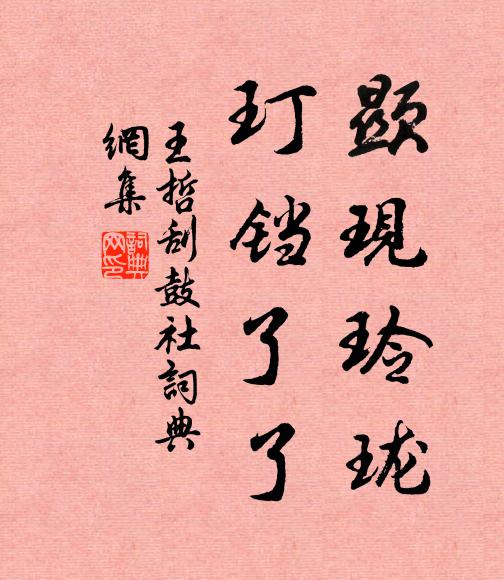 顯現玲珑
玎铛了了
王哲刮鼓社詞典
網集
詞典網印